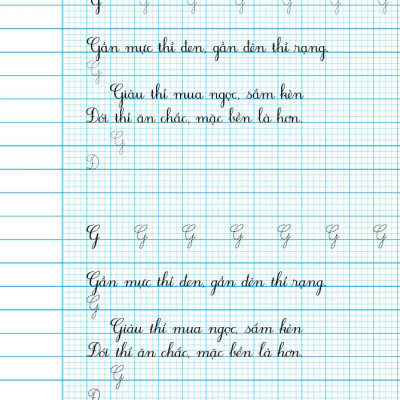 G G G G G G G
Gần mực thì đen, gần đèn thì rạng.
G
Giàu thì mua ngọc, sắm kèn
Đói thì ăn chắc, mặc bền là hơn.
G
Đ
G G G G G G G
Gần mực thì đen, gần đèn thì rạng.
G
Giàu thì mua ngọc, sắm kèn
Đói thì ăn chắc, mặc bền là hơn.
G
Đ